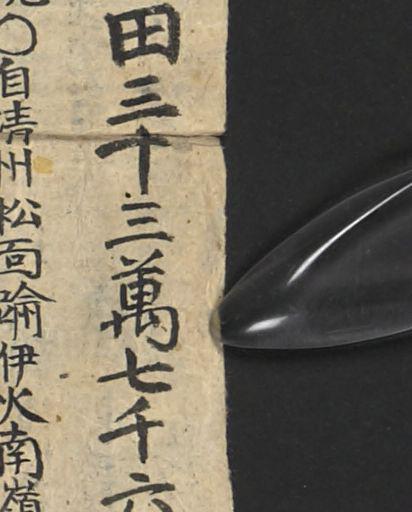 田三十三萬七千六
〇自清州松面踰伊火南嶺